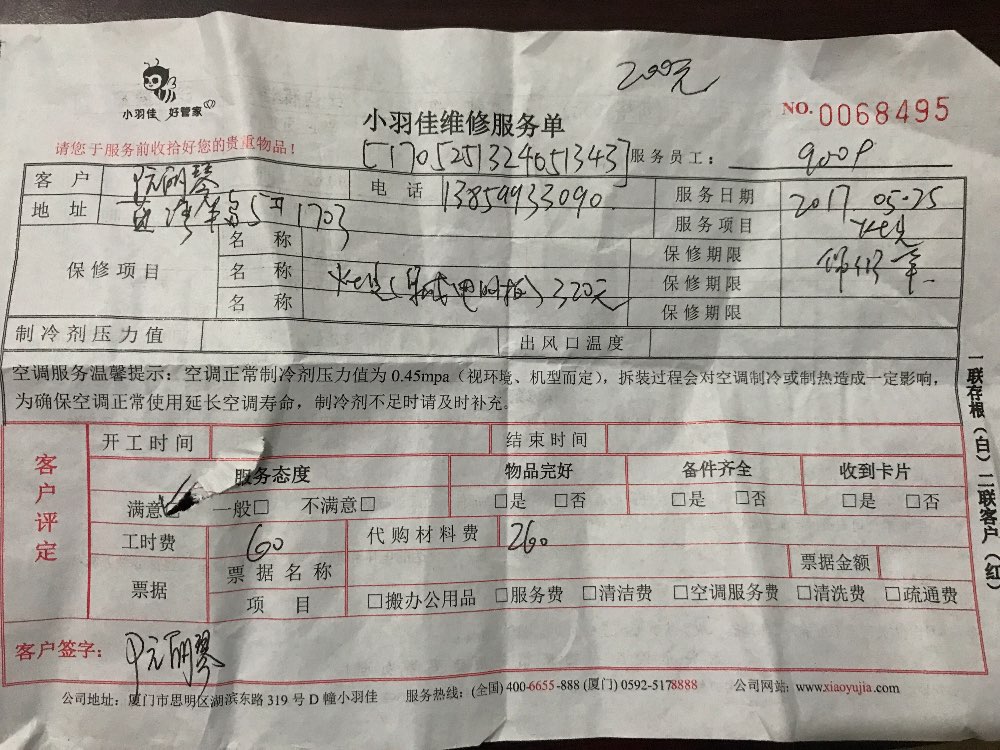 200元
小羽佳 好管家
小羽佳维修服务单
NO. 0068495
请您于服务前收拾好您的贵重物品！
[51705251324051343]
服务员工：
客 户 阮丽琴
电 话 13859933090
服务日期 2017 05.25
地 址 5 1703
服务项目
保修项目
名 称
保修期限
名 称 320元
保修期限
名 称
保修期限
制冷剂压力值
出风口温度
空调服务温馨提示：空调正常制冷剂压力值为 0.45mpa（视环境、机型而定），拆装过程会对空调制冷或制热造成一定影响，
为确保空调正常使用延长空调寿命，制冷剂不足时请及时补充。
一联存根（白）二联客户（红）
客户评定
开工时间
结束时间
服务态度 物品完好 备件齐全 收到卡片
满意☑ 一般□ 不满意□ □是 □否 □是 □否 □是 □否
工时费 60 代购材料费 260
票据
票据名称
票据金额
项 目 □搬办公用品 □服务费 □清洁费 □空调服务费 □清洗费 □疏通费
客户签字： 阮丽琴
公司地址：厦门市思明区湖滨东路 319 号 D 幢小羽佳 服务热线：(全国) 400-6655-888 (厦门) 0592-5178888 公司网站：www.xiaoyujia.com